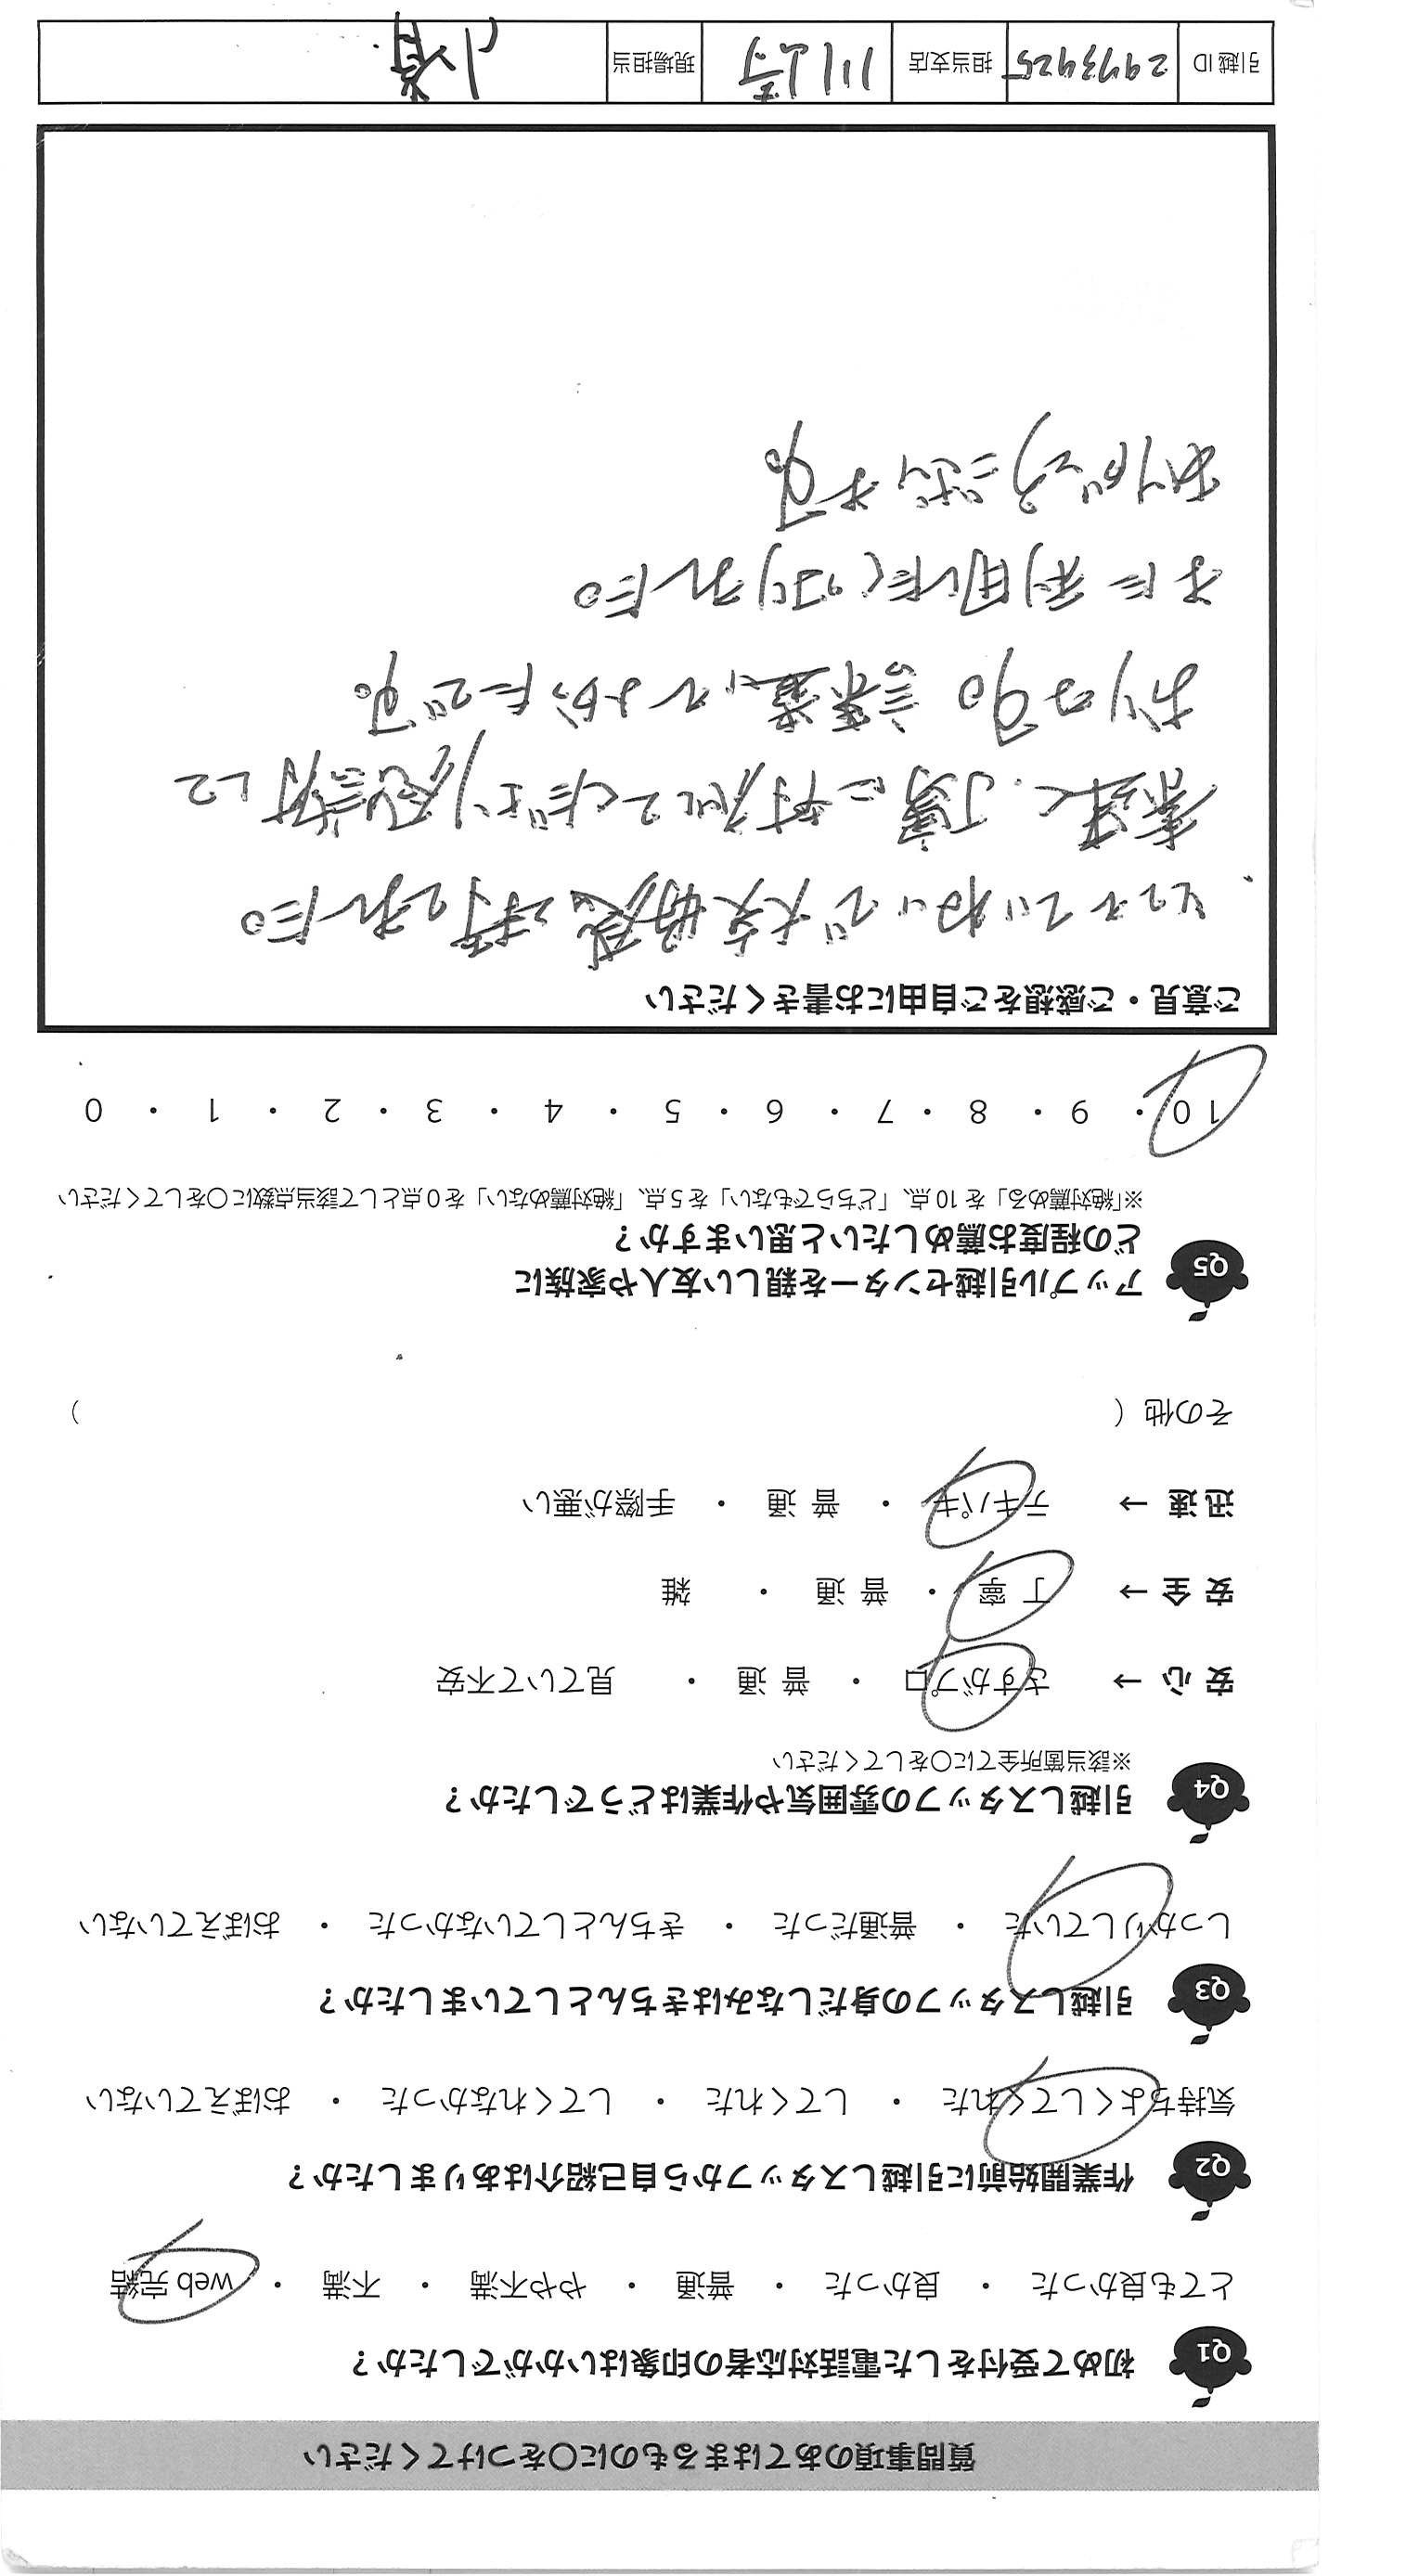 質問事項のあてはまるものに○をつけてください
Q1 初めて受付をした電話対応者の印象はいかがでしたか？
とても良かった ・ 良かった ・ 普通 ・ やや不満 ・ 不満 ・ web 完結
Q2 作業開始前に引越しスタッフから自己紹介はありましたか？
気持ちよくしてくれた ・ してくれた ・ してくれなかった ・ おぼえていない
Q3 引越しスタッフの身だしなみはきちんとしていましたか？
しっかりしていた ・ 普通だった ・ きちんとしていなかった ・ おぼえていない
Q4 引越しスタッフの雰囲気や作業はどうでしたか？
※該当箇所全てに○をしてください
安 心 → さすがプロ ・ 普 通 ・ 見ていて不安
安 全 → 丁 寧 ・ 普 通 ・ 雑
迅 速 → テキパキ ・ 普 通 ・ 手際が悪い
その他（ ）
Q5 アップル引越センターを親しい友人や家族に
どの程度お薦めしたいと思いますか？
※「絶対薦める」を 10 点、「どちらでもない」を 5 点、「絶対薦めない」を 0 点として該当点数に○をしてください
10 ・ 9 ・ 8 ・ 7 ・ 6 ・ 5 ・ 4 ・ 3 ・ 2 ・ 1 ・ 0
ご意見・ご感想をご自由にお書きください
とてもていねいで大変好感を持てました。
素早く、丁寧に対応してくださり感謝して
おります。 でよかったです。
また利用したくなりました。
ありがとうございます。
引越 ID 2973425 担当支店 川崎 現場担当